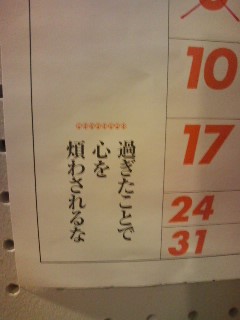 過ぎたことで
心を
煩わされるな
10
17
24
31